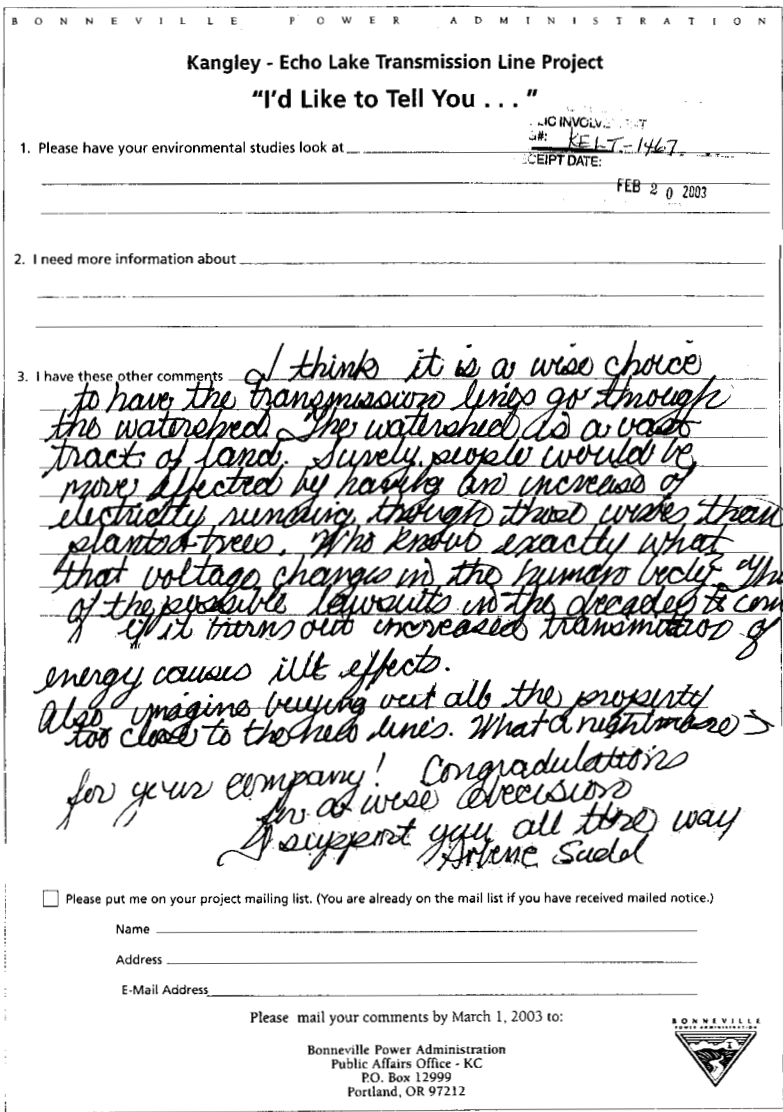 BONNEVILLE POWER ADMINISTRATION
Kangley - Echo Lake Transmission Line Project
"I'd Like to Tell You . . . "
KELT-1467
CEIPT DATE:
FEB 2 0 2003
1. Please have your environmental studies look at
2. I need more information about
3. I have these other comments I think it is a wise choice
to have the transmission lines go through
the watershed. The watershed is a vast
tract of land. Surely people would be
more affected by having an increase of
electricity running though those wires than
plants + trees. Who knows exactly what
that voltage changes in the human body.
of the possible lawsuits in the decades to com
if it turns out increased of
energy causes ill effects.
Also imagine buying out all the property
too close to the new lines. What a nightmare
for your company! Congradulations
for a wise decision
I support you all the way
Arlene Sudd
Please put me on your project mailing list. (You are already on the mail list if you have received mailed notice.)
Name
Address
E-Mail Address
Please mail your comments by March 1, 2003 to:
Bonneville Power Administration
Public Affairs Office - KC
P.O. Box 12999
Portland, OR 97212
BONNEVILLE
POWER ADMINISTRATION